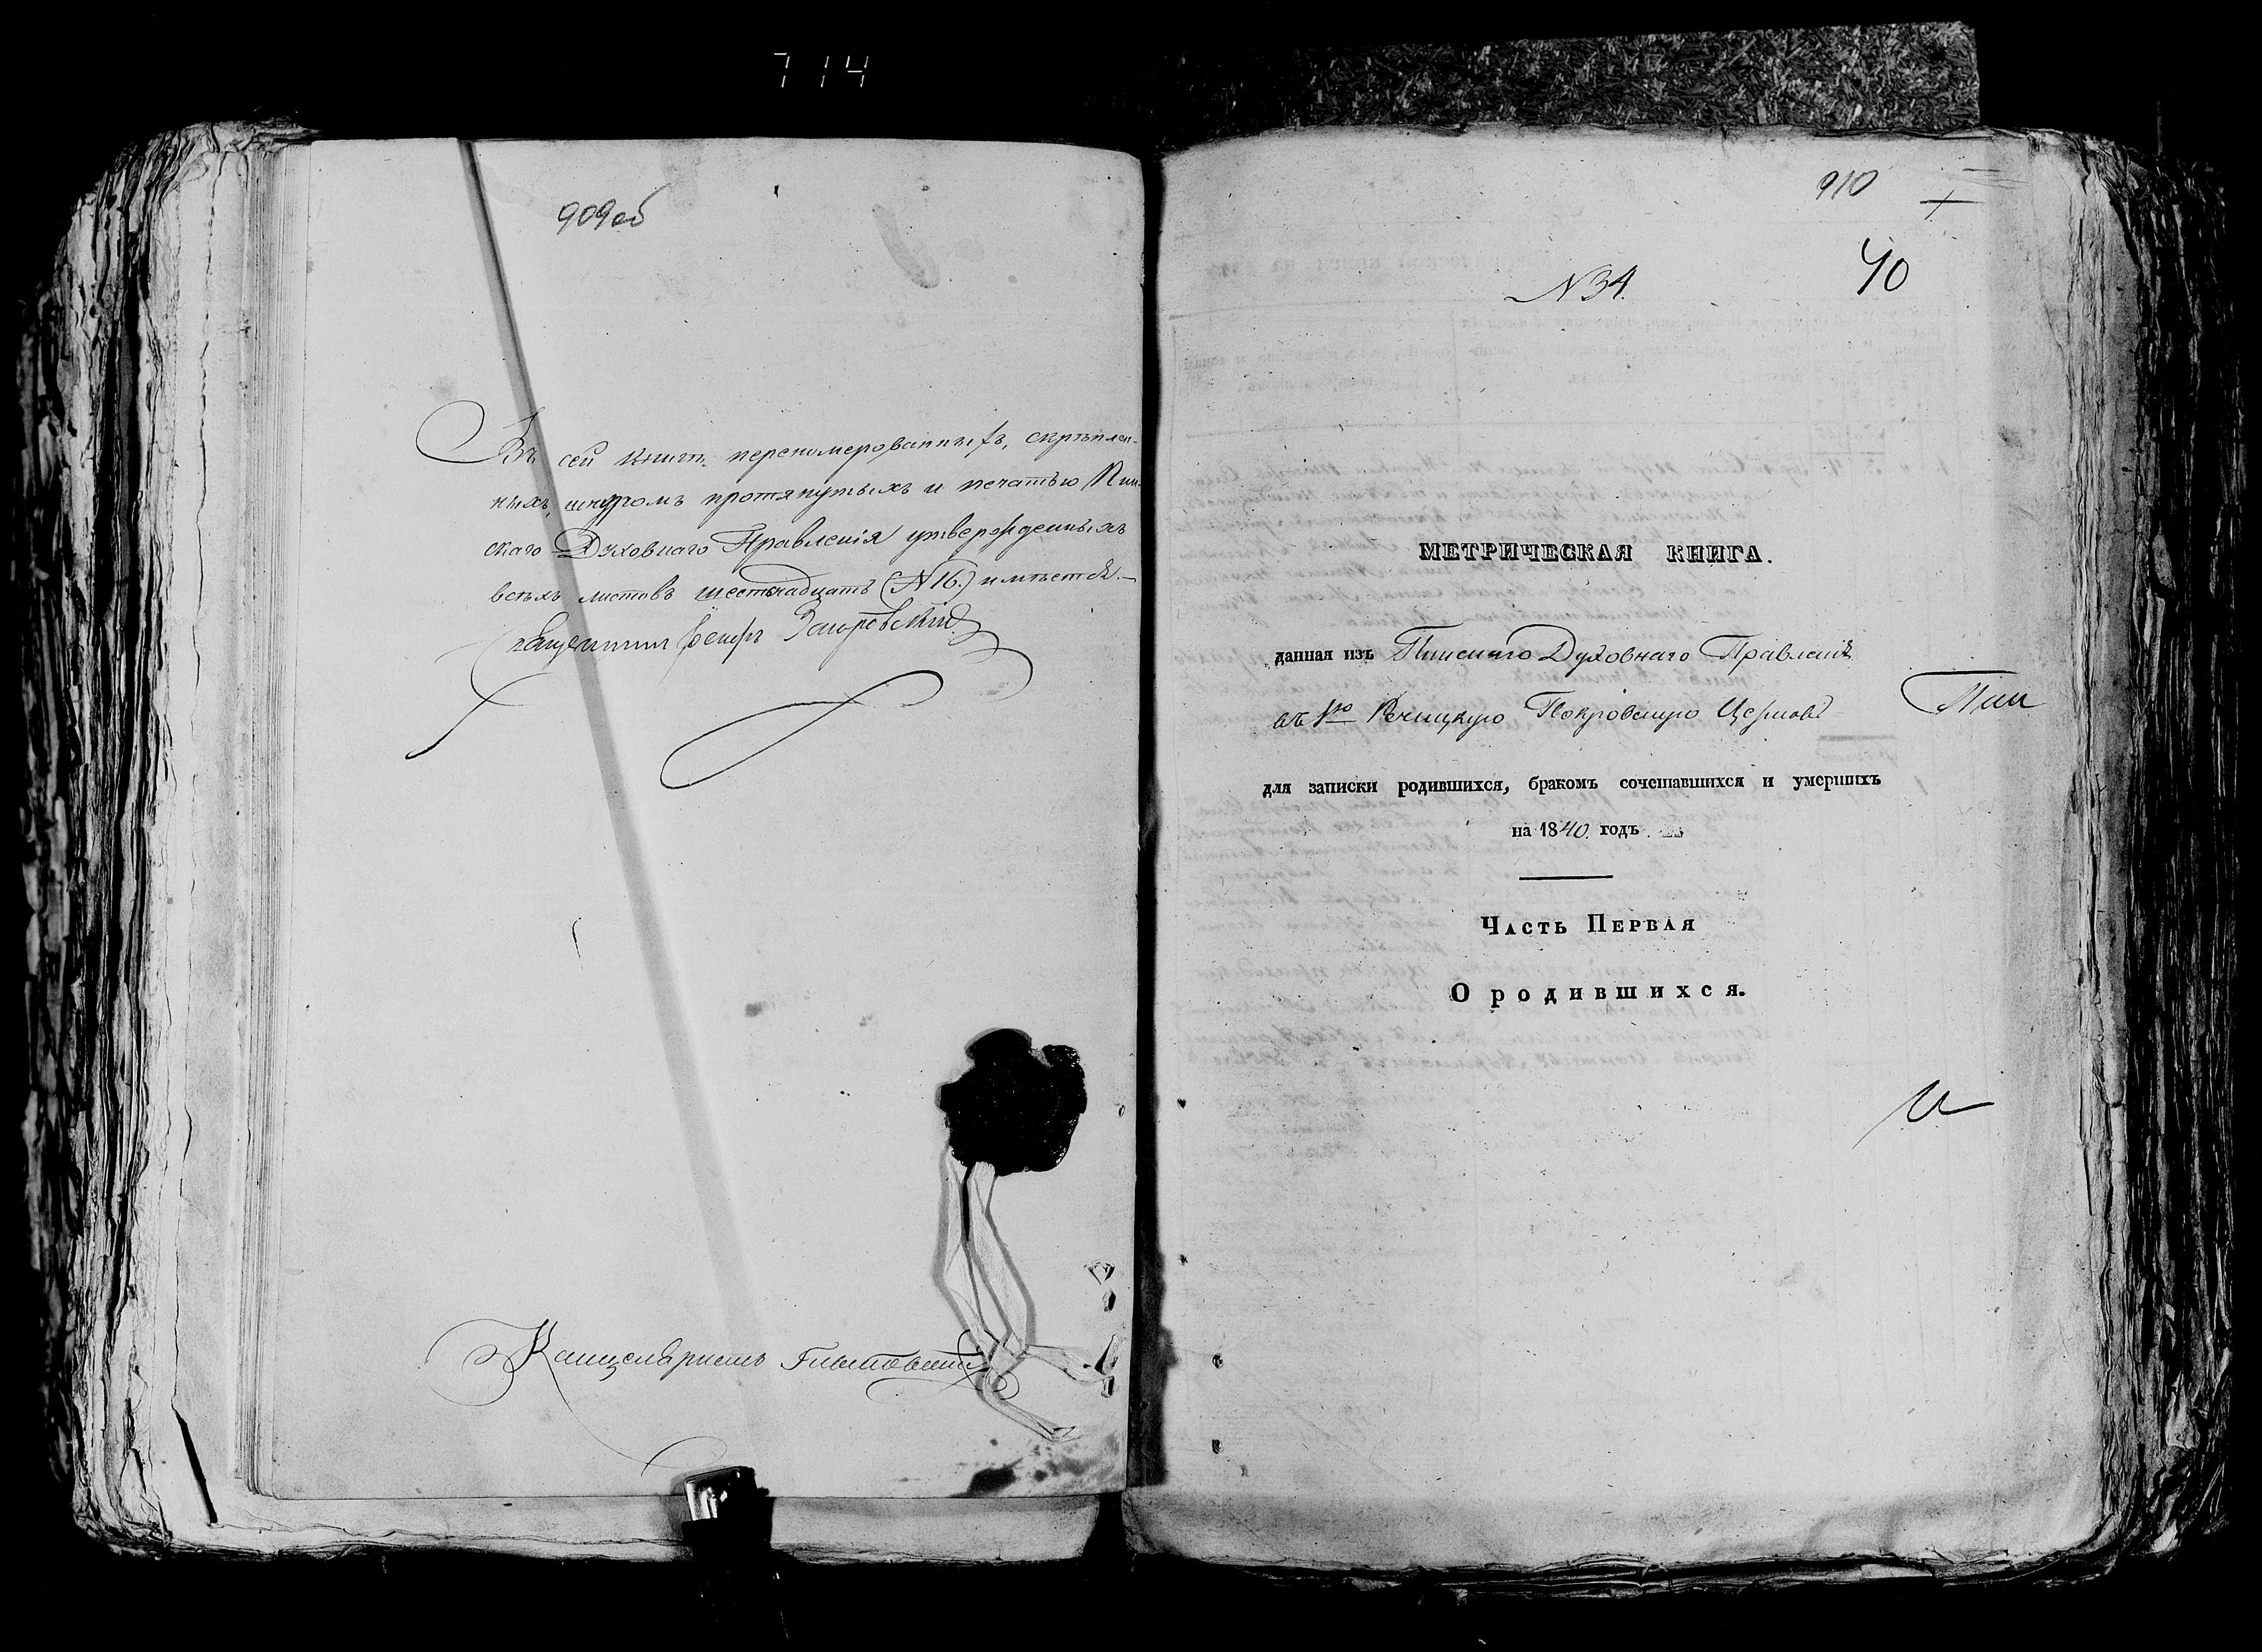 714
909об
Въ сей книгѣ перенумерованныхъ, скрѣплен-
ныхъ, шнуромъ протянутыхъ и печатью Пин-
скаго Духовнаго Правленія утвержденныхъ
всѣхъ листовъ шестнадцать (№ 16.) имѣется.—
Канцеляристъ
910
40
№ 34.
МЕТРИЧЕСКАЯ КНИГА.
данная изъ Пинскаго Духовнаго Правленія
въ 1ю Речицкую Покровскую Церковь
Пин
для записки родившихся, бракомъ сочетавшихся и умершихъ
на 1840. годъ
Часть Первая
О родившихся.